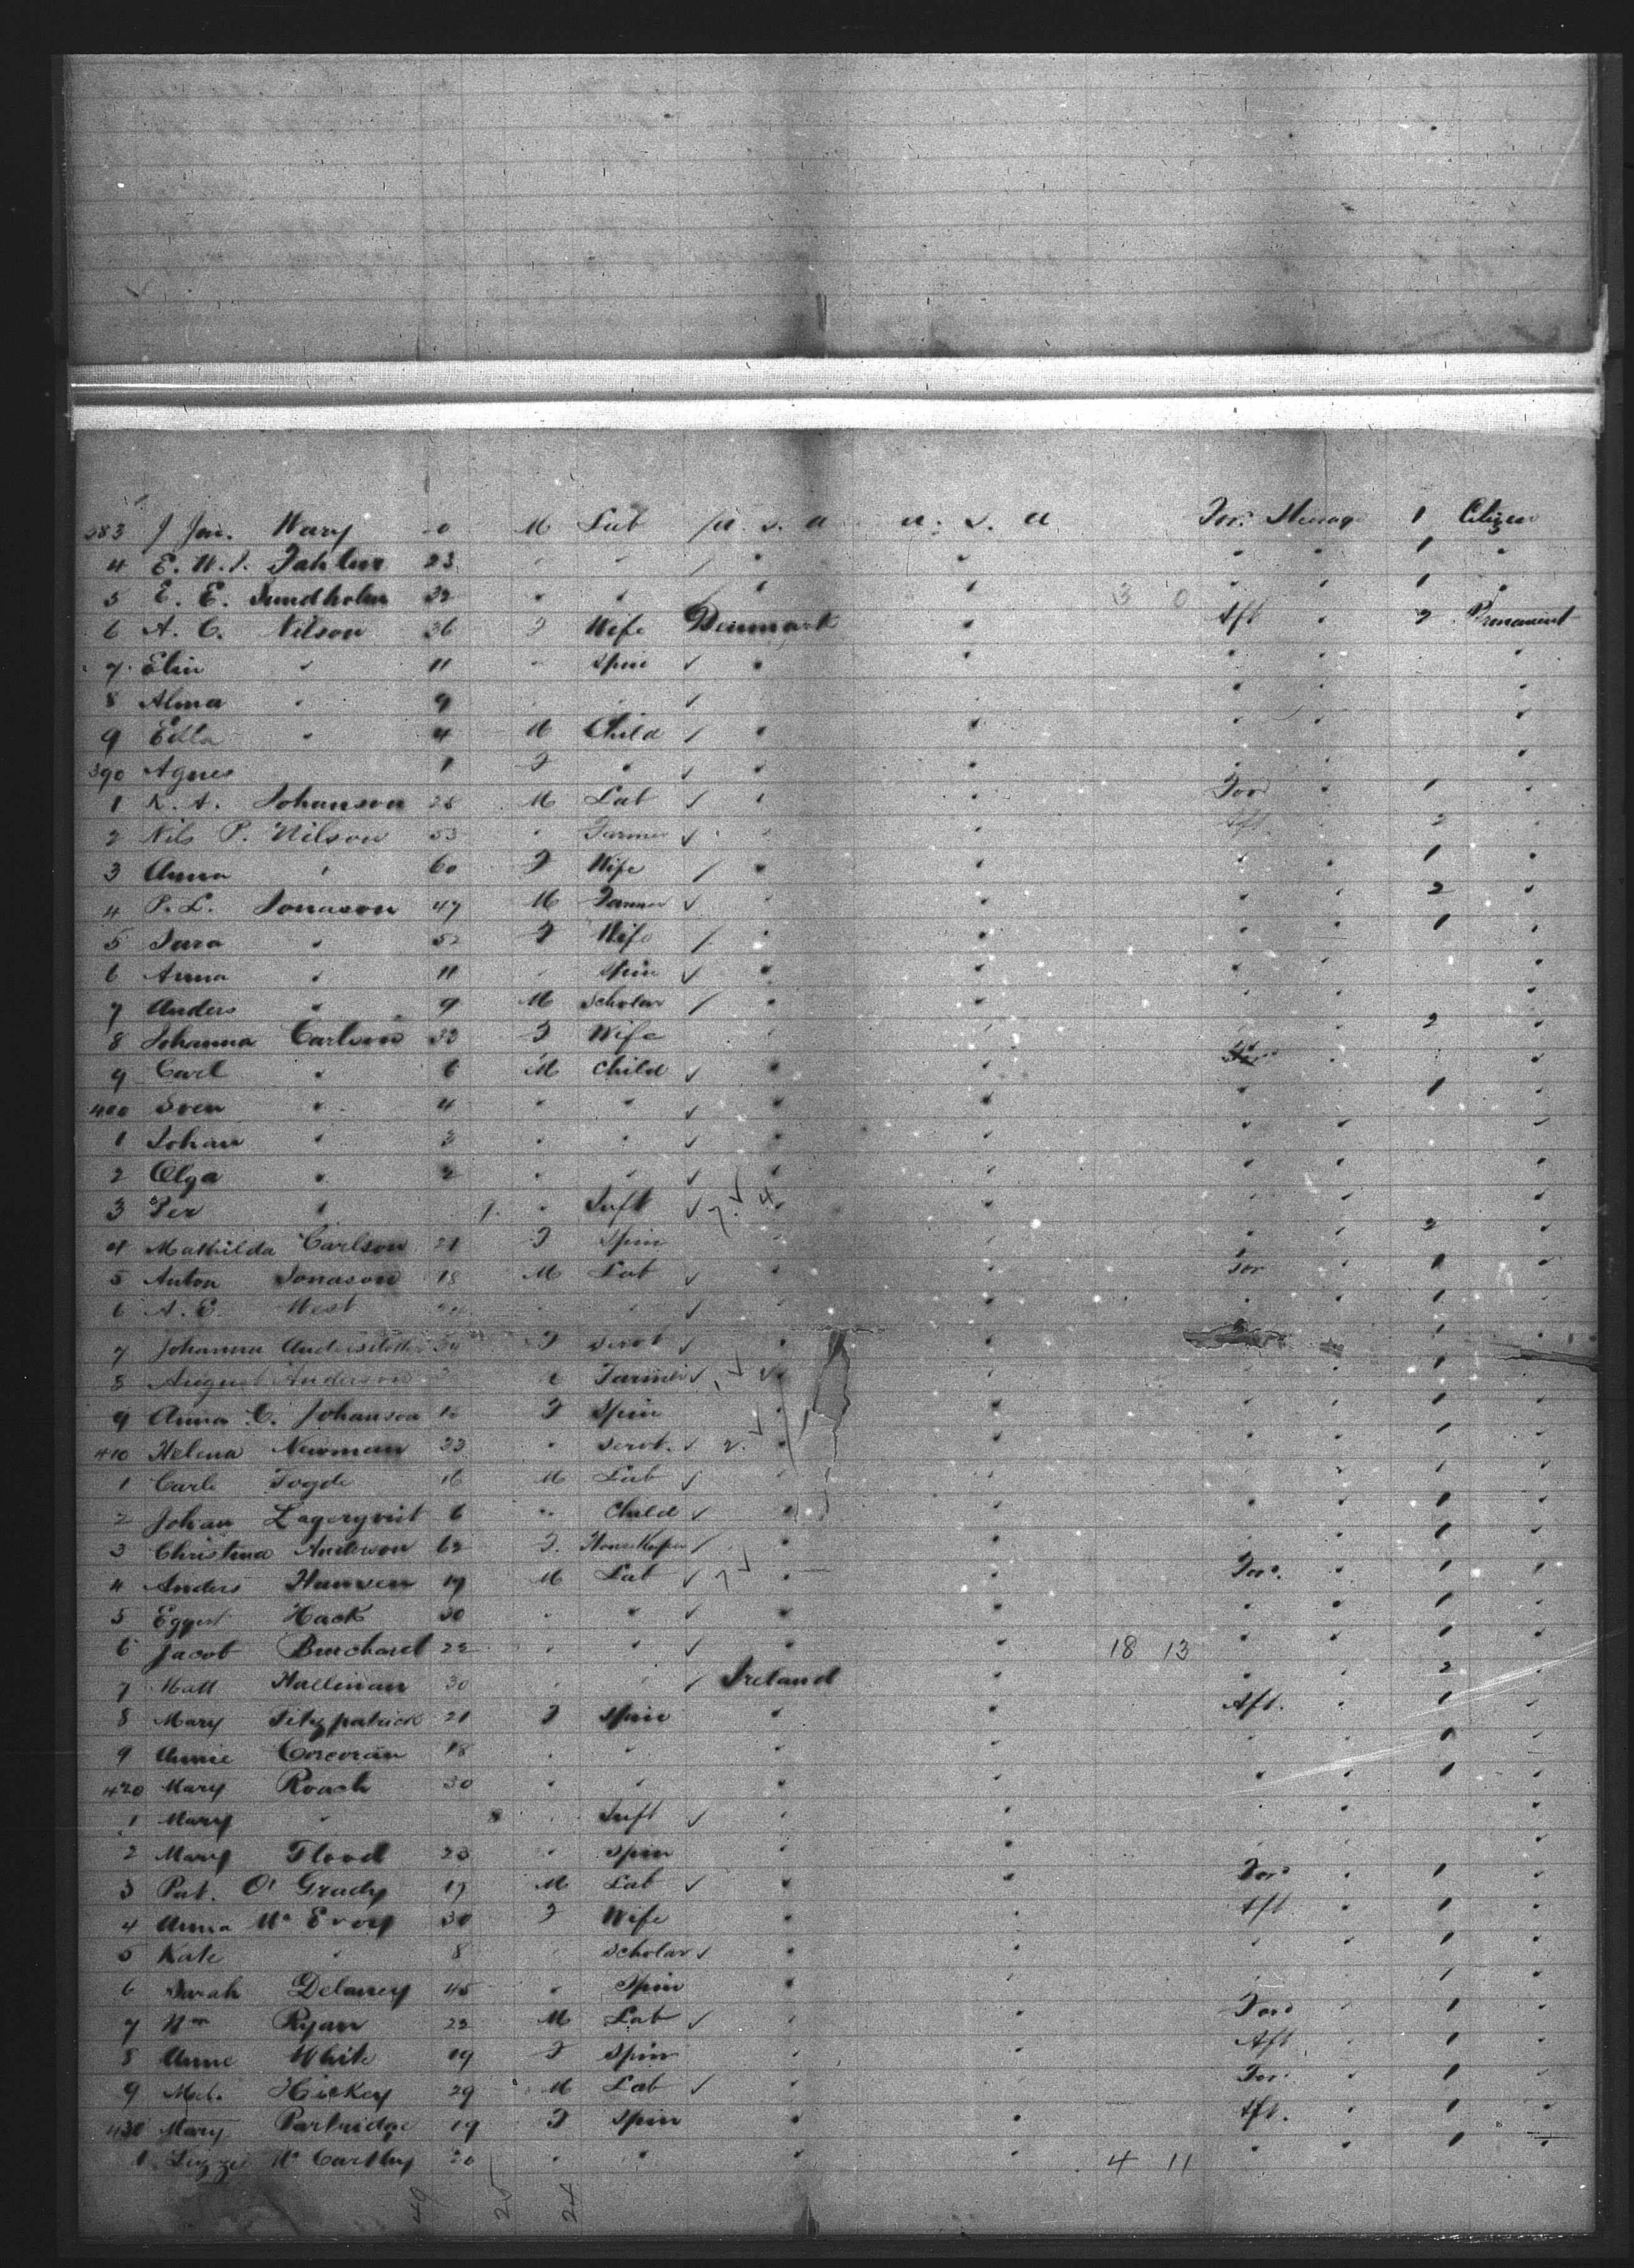 383 J Jon. Wary 0 M Lab / U. S. A U. S. A For. Steerage 1 Citizen
4 E. W. 23 " " / " " " " 1 "
5 E. E. Sundholm 32 " " / " " 3 0 " " 1 "
6 A. C. Nilson 36 F Wife Denmark " Aft " 2 Permanent
7 Elin " 11 " Spin ✓ " " " " "
8 Alma " 9 " " ✓ " " " "
9 Edla " 4 M Child / " " " " "
390 Agnes 1 F " ✓ " " " "
1 K. A. Johanson 28 M Lab ✓ " " Ford " 1 "
2 Nils P. Nilson 53 " Farmer ✓ " " Aft 2 "
3 Anna " 60 F Wife / " " " " 1 "
4 P. L. Jonason 47 M Farmer ✓ " " " " 2 "
5 Sara " 52 F Wife / " " " " 1 "
6 Anna " 11 " Spin ✓ " " " " "
7 Anders " 9 M Scholar / " " " " "
8 Johanna Carlson 33 F Wife " " " " 2 "
9 Carl " 6 M Child ✓ " " " "
400 Sven " 4 " " ✓ " " " " 1 "
1 Johan " 3 " " ✓ " " " " "
2 Olga " 2 " " ✓ " " " " "
3 Per " 1 " Inft ✓ " " " " "
4 Mathilda Carlson 21 F Spin " " " " 2 "
5 Anton Jonason 18 M Lab ✓ " " For " 1 "
6 A. E. West 24 " " ✓ " " " " 1 "
7 Johanna Andersdotter F Servt ✓ " " 1 "
8 August Anderson Farmer ✓ " " " " 1 "
9 Anna C. Johanson F Spin " " " " 1 "
410 Helena Newman 33 " Servt. ✓ 2. " " " " 1 "
1 Carl 16 M Lab ✓ " " " " 1 "
2 Johan Lagerqvist 6 " Child ✓ " " " " 1 "
3 Christina Anderson 62 F. HouseKeeper / " " " " 1 "
4 Anders Hansen 19 M Lab ✓ " " For. " 1 "
5 Eggert Hack 30 " " ✓ " " " " 1 "
6 Jacob Burchard 22 " " ✓ " " 18 13 " " 1 "
7 Matt Hallinan 30 " " / Ireland " " " 2 "
8 Mary Fitzpatrick 21 F Spin " " Aft. " 1 "
9 Annie Corcoran 18 " " " " " " 1 "
420 Mary Roach 30 " " " " " " 1 "
1 Mary " 8 " Inft ✓ " " " " "
2 Mary Flood 23 " Spin " " " " "
3 Pat. O' Grady 17 M Lab ✓ " " For " 1 "
4 Anna Mc Evoy 30 F Wife " " Aft " 1 "
5 Kate " 8 " Scholar ✓ " " " " 1 "
6 Sarah Delaney 45 " Spin " " " " 1 "
7 Wm Ryan 22 M Lab ✓ " " Ford " 1 "
8 Anne White 19 F Spin " " Aft " 1 "
9 Mch. Hickey 29 M Lab ✓ " " For. " 1 "
430 Mary Partridge 19 F Spin " " Aft. " 1 "
1 Lizzie Mc Carthy 20 " " " " 4 11 " " 1 "
49 25 24